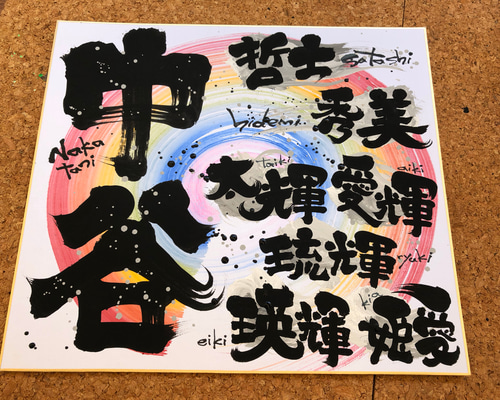 中谷
Naka
tani
哲士 satoshi
hidemi 秀美
太輝 taiki
愛輝 aiki
琉輝 ryuki
eiki 瑛輝
姫愛